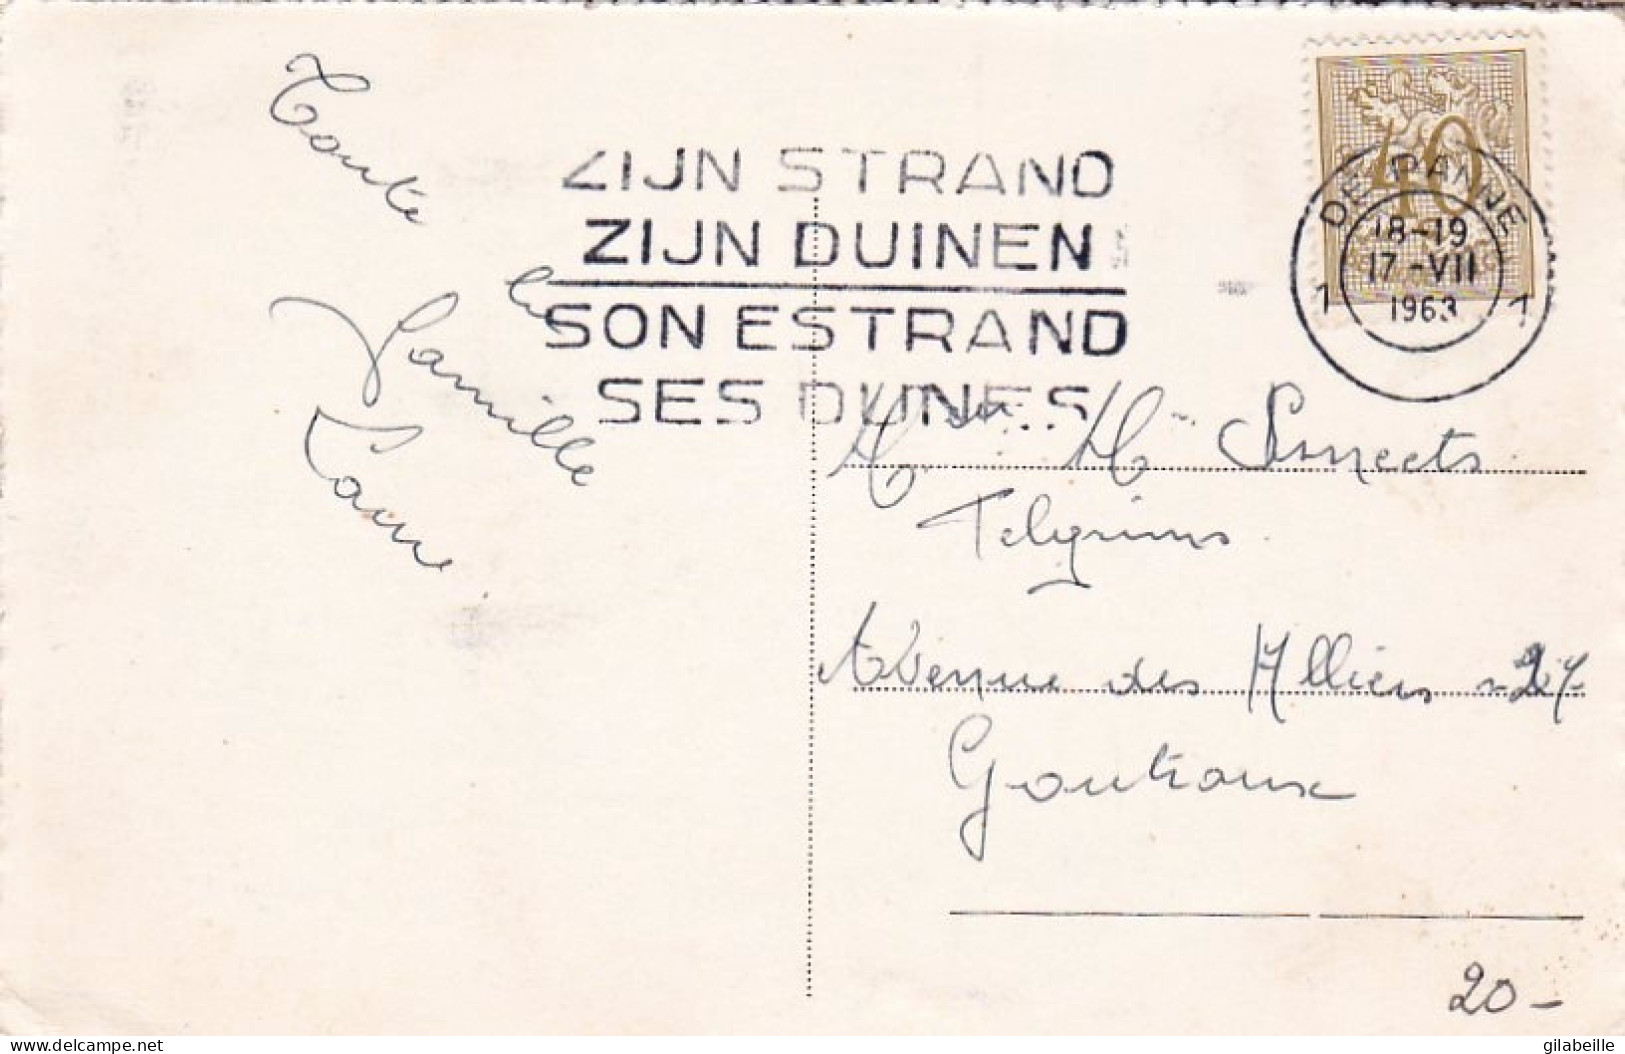 Toute
la
famille
ZIJN STRAND
ZIJN DUINEN
SON ESTRAND
SES DUNES
40
DE PANNE
18-19
17-VII
1963
1 1
Smeets
Pelgrims
Avenue des Alliés 27
Goutroux
20-
delcampe.net
gilabeille